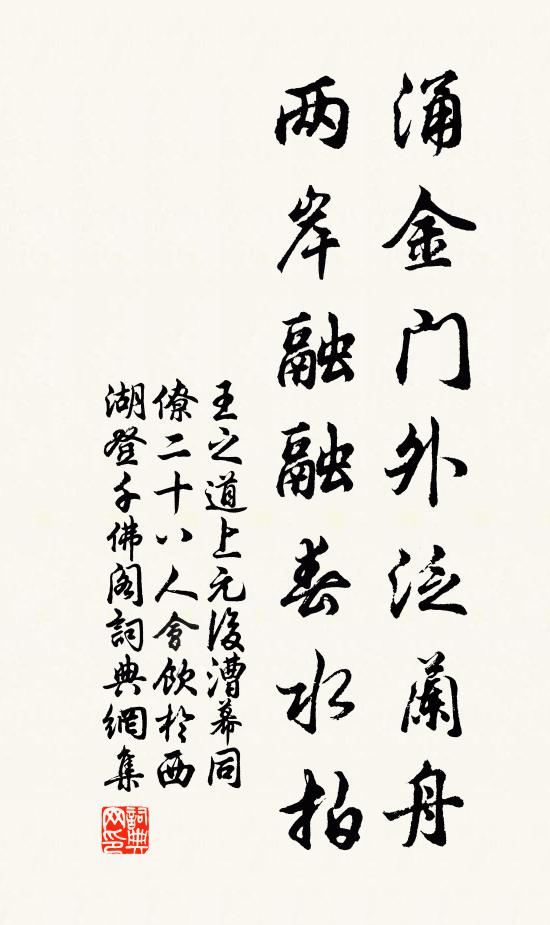 涌金门外泛蘭舟
两岸融融春水拍
王之道上元後漕幕同
僚二十八人會飲於西
湖登千佛阁詞典網集
詞典
网印